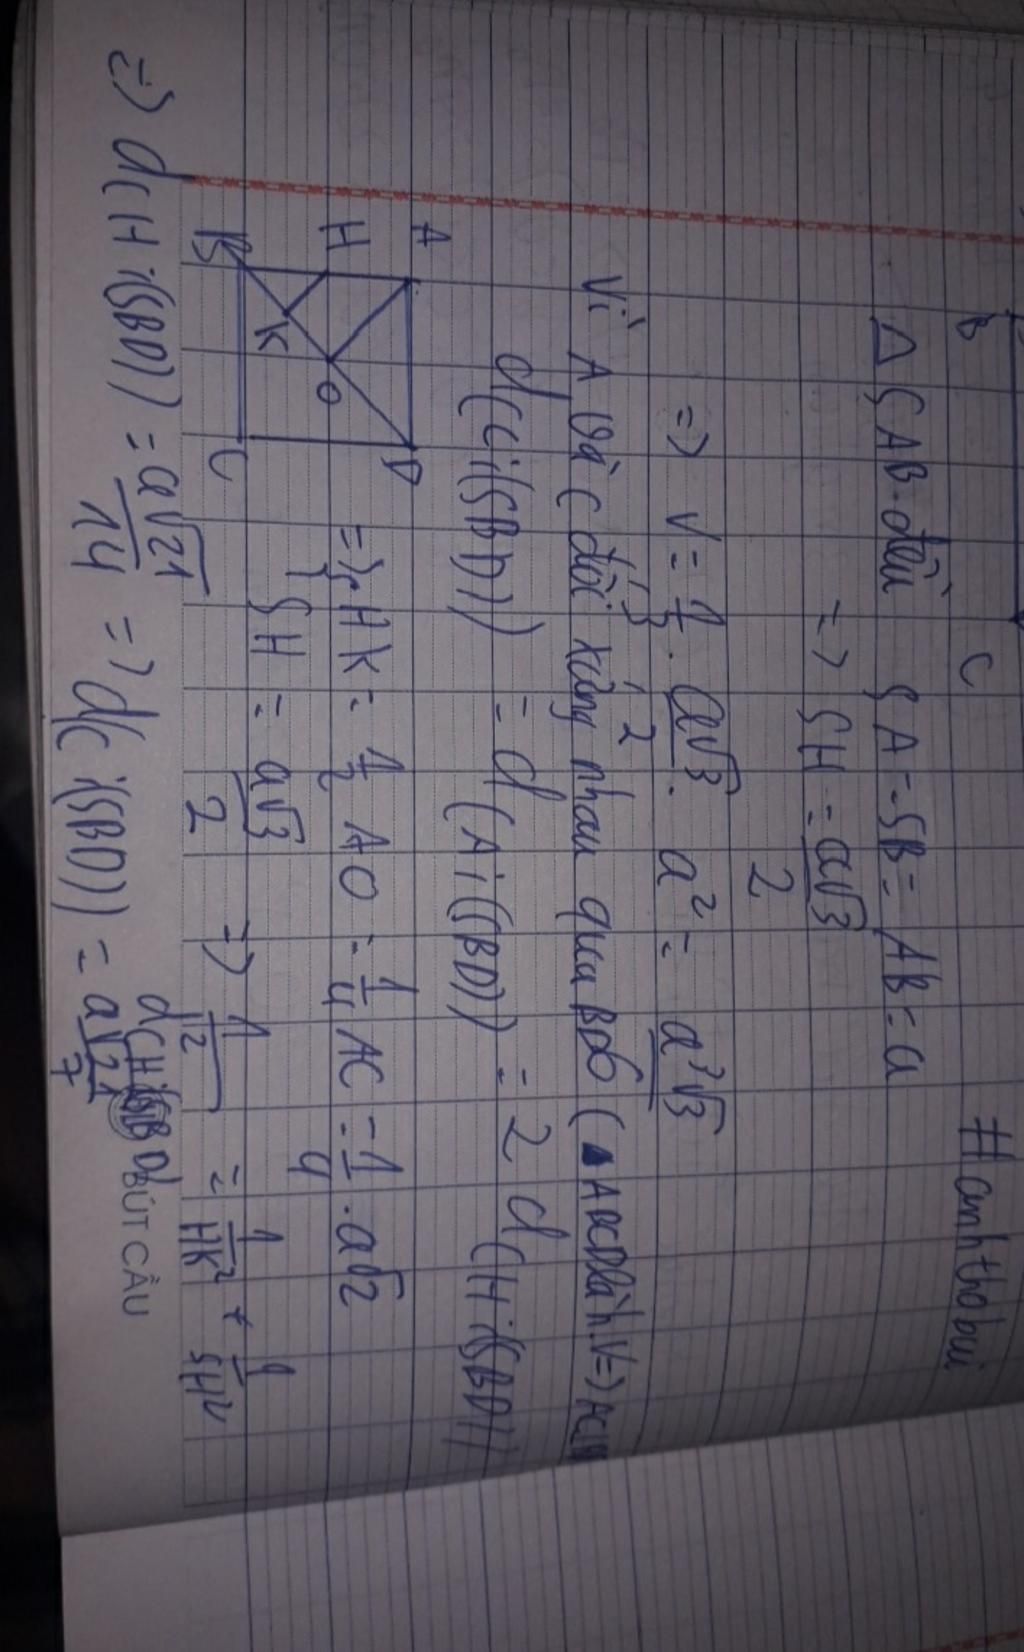 B C #anhthobui
Δ SAB đều SA = SB = AB = a
=> SH = a√3/2
=> V = 1/3 . a√3/2 . a² = a³√3
Vì A và C đối xứng nhau qua BD ( ABCD là h.V =>
d(C;(SBD)) = d(A;(SBD)) = 2 d(H;(SBD))
A D
H O
K
B C
=> { HK = 1/2 AO = 1/4 AC = 1/4 . a√2
SH = a√3/2 => 1/d²(H;(SBD)) = 1/HK² + 1/SH²
=> d(H;(SBD)) = a√21/14 => d(C;(SBD)) = a√21/7
BÚT CẦU